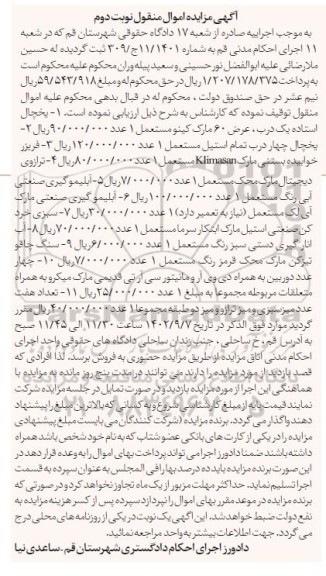 آگهی مزایده اموال منقول نوبت دوم
به موجب اجراییه صادره از شعبه ۱۷ دادگاه حقوقی شهرستان قم که در شعبه
۱۱ اجرای احکام مدنی قم به شماره ۱۱/۱۴۰۱ج/۳۰۹ ثبت گردیده له حسین
ملارضائی علیه ابوالفضل نورحسینی و سعید پیله وران محکوم علیه محکوم است
به پرداخت ۱/۲۰۷/۱۷۸/۳۷۵ ریال در حق محکوم له و مبلغ ۵۹/۵۴۳/۹۱۸ ریال
نیم عشر در حق صندوق دولت ، محکوم له در قبال بدهی محکوم علیه اموال
منقول توقیف نموده که کارشناس به شرح ذیل ارزیابی نموده است. ۱- یخچال
ایستاده یک درب ، عرض ۶۰ مارک کینو مستعمل ۱ عدد ۹۰/۰۰۰/۰۰۰ ریال ۲-
یخچال چهار درب تمام استیل مستعمل ۱ عدد ۱۲۰/۰۰۰/۰۰۰ ریال ۳- فریزر
خوابیده بستنی مارک Klimasan مستعمل ۱ عدد ۸۰/۰۰۰/۰۰۰ ریال ۴- ترازوی
دیجیتال مارک محک مستعمل ۱ عدد ۷/۰۰۰/۰۰۰ ریال ۵- آبلیمو گیری صنعتی
آبی رنگ مستعمل ۱ عدد ۱۰۰/۰۰۰/۰۰۰ ریال ۶- آبلیمو گیری صنعتی مارک
آی تک مستعمل (نیاز به تعمیر دارد) ۱ عدد ۳۰/۰۰۰/۰۰۰ ریال ۷- سبزی خرد
کن صنعتی استیل مارک ابتکار سرما مستعمل ۱ عدد ۷۰/۰۰۰/۰۰۰ ریال ۸- آب
انار گیری دستی سبز رنگ مستعمل ۱ عدد ۶/۰۰۰/۰۰۰ ریال ۹- سنگ چاقو
تیزکن مارک محک قرمز رنگ مستعمل ۱ عدد ۷/۰۰۰/۰۰۰ ریال ۱۰- چهار
عدد دوربین به همراه دی وی آر و مانیتور سی آر تی قدیمی مارک میکرو به همراه
متعلقات مربوطه مجموعا به مبلغ ۱ عدد ۲۵/۰۰۰/۰۰۰ ریال ۱۱- تعداد هفت
عدد میز سبزی و میز ترازو و میز دو طبقه مجموعا ۱ عدد ۴۰/۰۰۰/۰۰۰ ریال مقرر
گردید موارد فوق الذکر در تاریخ ۱۴۰۲/۹/۷ ساعت ۱۱/۳۰ الی ۱۱/۴۵ صبح
به آدرس قم ، خ ساحلی ، جنب زندان ساحلی دادگاه های حقوقی واحد اجرای
احکام مدنی اتاق مزایده از طریق مزایده حضوری به فروش برسد. لذا افرادی که
قصد بازدید از مورد مزایده را دارند می توانند در مدت پنج روز مانده به مزایده با
هماهنگی این اجرا از مورد مزایده بازدید و در صورت تمایل در جلسه مزایده شرکت
نمایند قیمت پایه از مبلغ کارشناسی شروع و به کسانی که بالاترین مبلغ را پیشنهاد
دهند واگذار می گردد. برنده مزایده (شرکت کنندگان می بایست مبلغ پیشنهادی
مزایده را در یکی از کارت های بانکی عضو شتاب که به نام خود شخص باشد همراه
داشته باشند ضمنا دادورز اجرا می تواند پرداخت بهای اموال را به وعده قرار دهد در
این صورت برنده مزایده باید ده درصد بها را فی المجلس به عنوان سپرده به قسمت
اجرا تسلیم نماید. حداکثر مهلت مزبور از یک ماه تجاوز نخواهد کرد و در صورتی که
برنده مزایده در موعد مقرر بهای اموال را نپردازد سپرده پس از کسر هزینه مزایده به
نفع دولت ضبط خواهد شد. این آگهی یک نوبت در یکی از روزنامه های محلی درج
می گردد. جهت اطلاعات بیشتر به واحد مراجعه نمائید.
دادورز اجرای احکام دادگستری شهرستان قم - ساعدی نیا